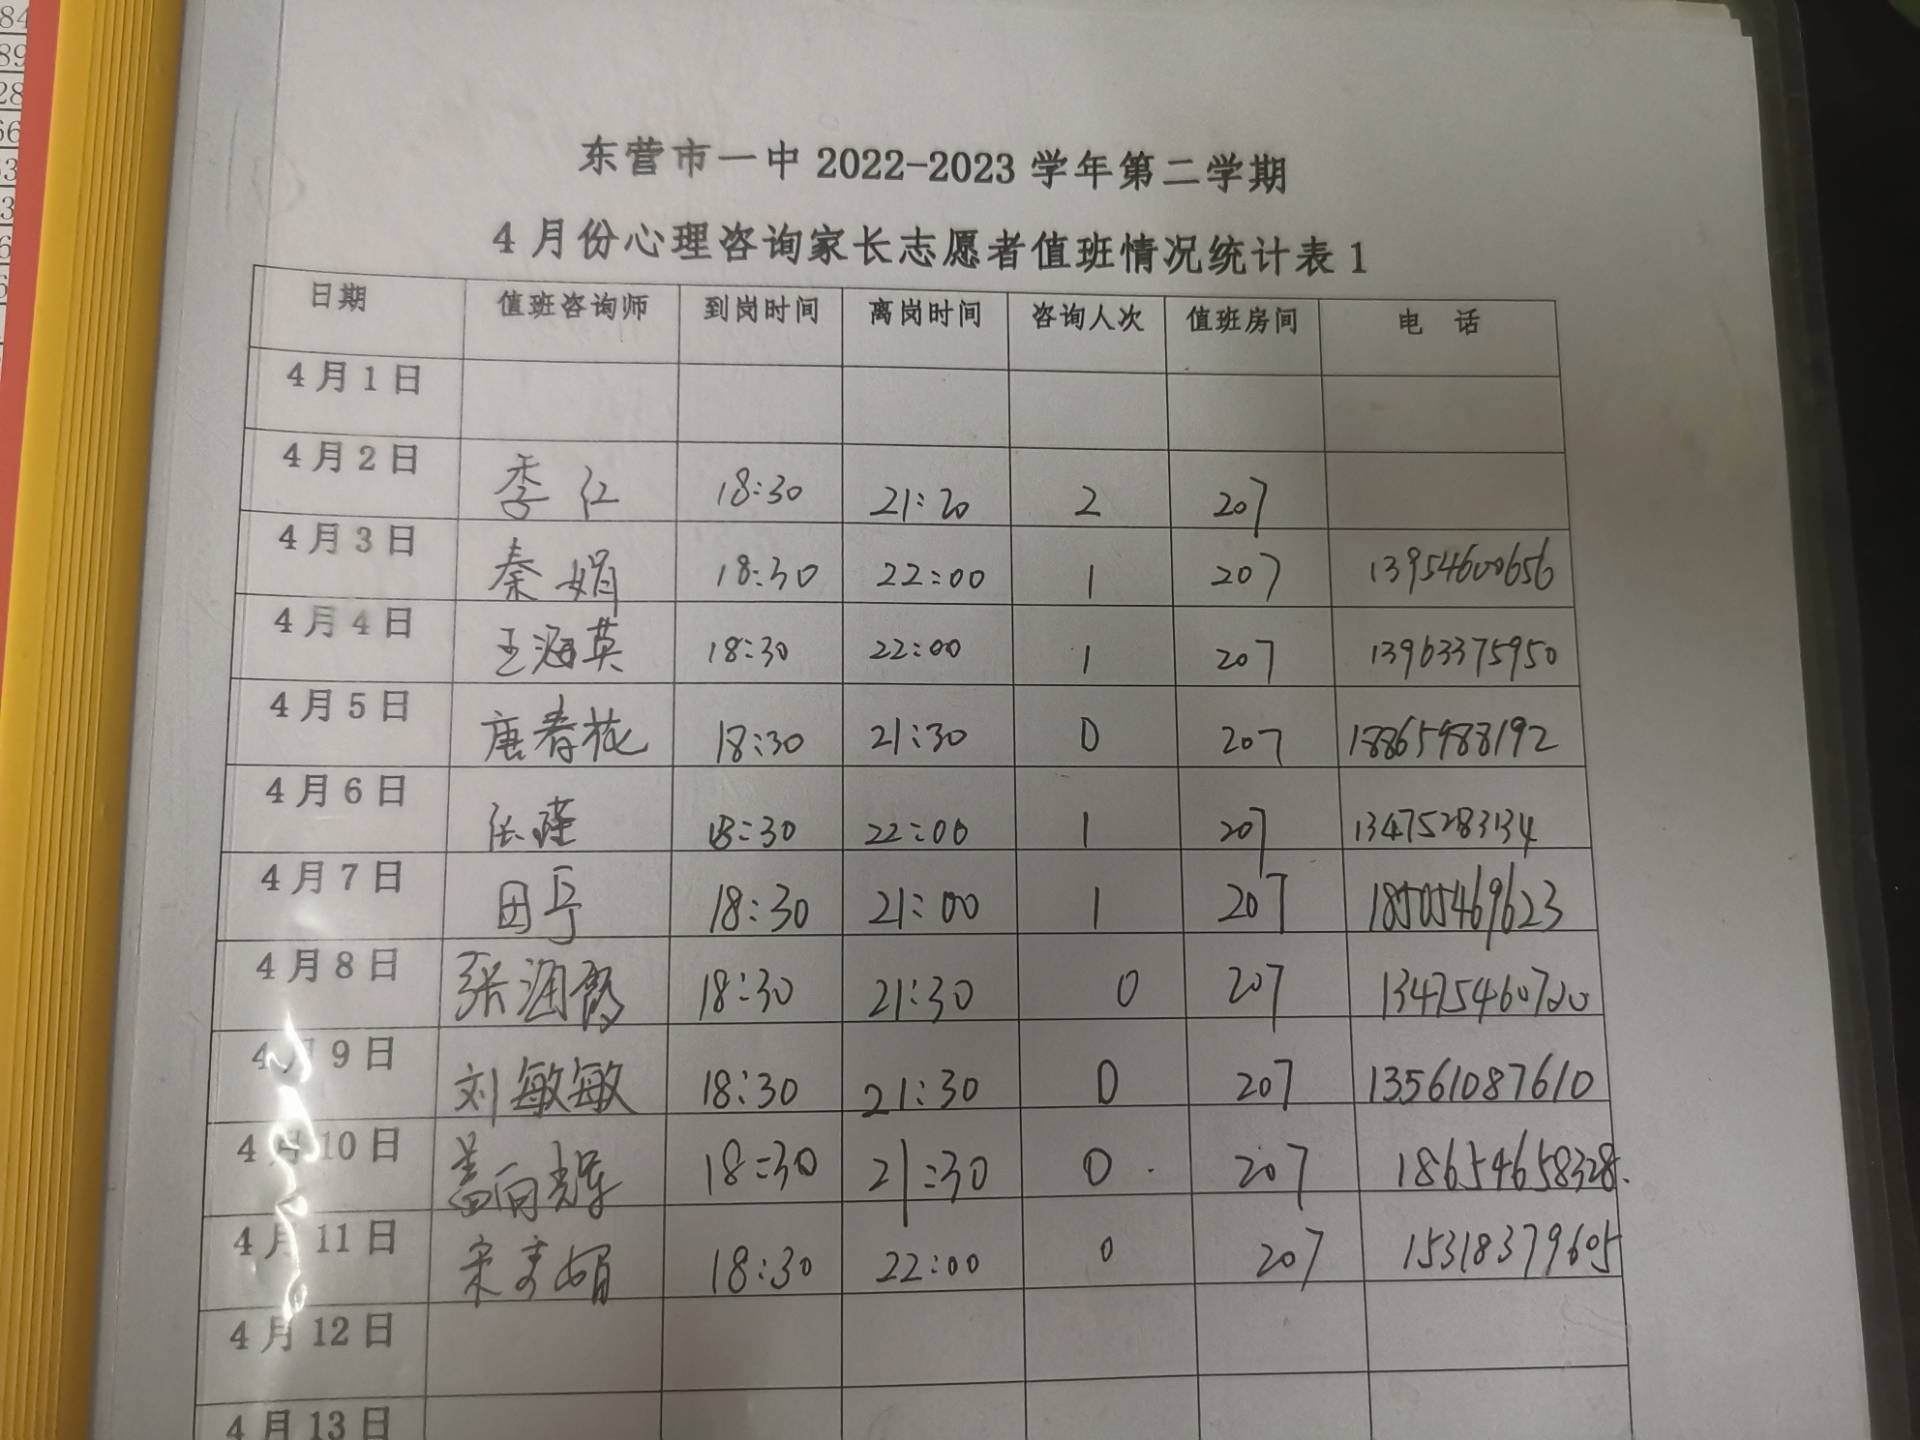 84
89
28
66
东营市一中 2022-2023 学年第二学期
4 月份心理咨询家长志愿者值班情况统计表 1
日期 值班咨询师 到岗时间 离岗时间 咨询人次 值班房间 电 话
4月1日
4月2日 季红 18:30 21:20 2 207
4月3日 秦娟 18:30 22:00 1 207 13954600656
4月4日 王海英 18:30 22:00 1 207 13963375950
4月5日 唐春花 18:30 21:30 0 207 18865488192
4月6日 18:30 22:00 1 207 13475283134
4月7日 田 18:30 21:00 1 207 18505469623
4月8日 张润 18:30 21:30 0 207 13475460720
4月9日 刘敏敏 18:30 21:30 0 207 13561087610
4月10日 盖向辉 18:30 21:30 0 207 18654658328.
4月11日 宋 娟 18:30 22:00 0 207 15318379605
4月12日
4月13日